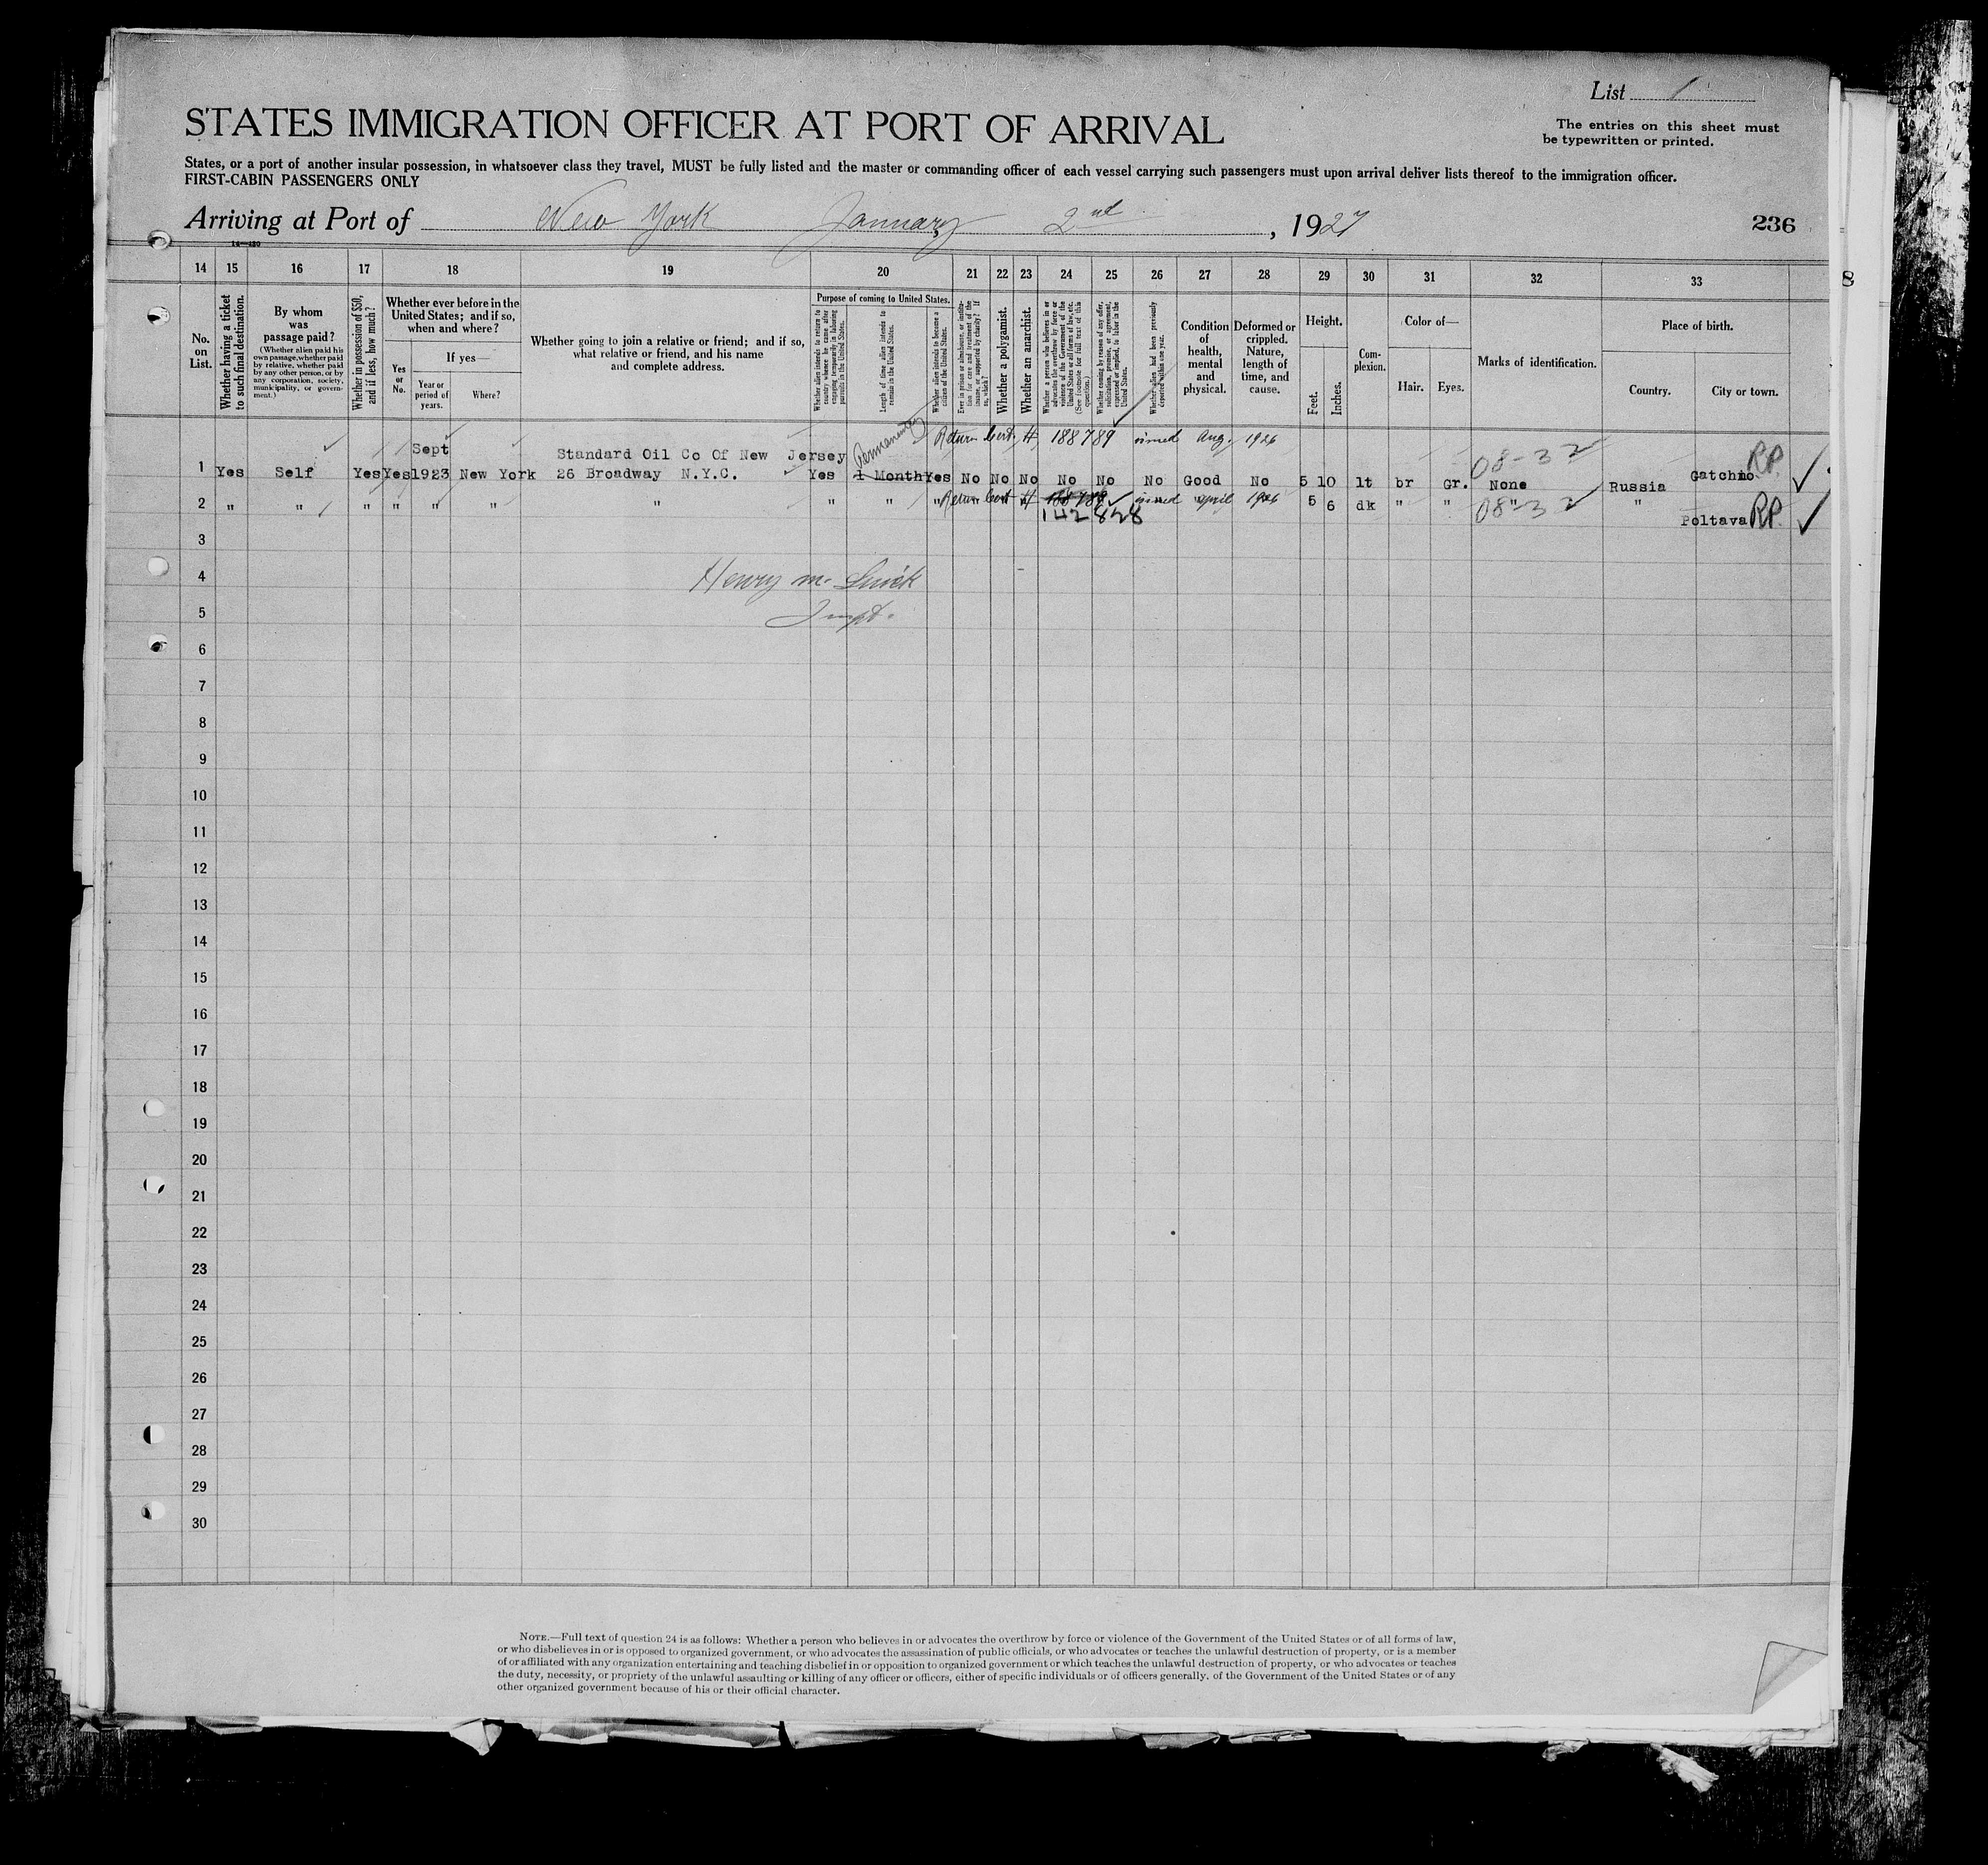 List 1
STATES IMMIGRATION OFFICER AT PORT OF ARRIVAL
The entries on this sheet must
be typewritten or printed.
States, or a port of another insular possession, in whatsoever class they travel, MUST be fully listed and the master or commanding officer of each vessel carrying such passengers must upon arrival deliver lists thereof to the immigration officer.
FIRST-CABIN PASSENGERS ONLY
Arriving at Port of New York January, 2nd, 1927
236
14 15 16 17 18 19 20 21 22 23 24 25 26 27 28 29 30 31 32 33
No. on List.
Whether having a ticket to such final destination.
By whom was passage paid?
(Whether alien paid his own passage, whether paid by relative, whether paid by any other person, or by any corporation, society, municipality, or government.)
Whether in possession of $50, and if less, how much?
Whether ever before in the United States; and if so, when and where?
Yes or No.
If yes—
Year or period of years.
Where?
Whether going to join a relative or friend; and if so, what relative or friend, and his name and complete address.
Purpose of coming to United States.
Whether alien intends to return to country whence he came after engaging temporarily in laboring pursuits in the United States.
Length of time alien intends to remain in the United States.
Whether alien intends to become a citizen of the United States.
Ever in prison or almshouse, or institution for care and treatment of the insane, or supported by charity? If so, which?
Whether a polygamist.
Whether an anarchist.
Whether a person who believes in or advocates the overthrow by force or violence of the Government of the United States or all forms of law, etc. (See footnote for full text of this question.)
Whether coming by reason of any offer, solicitation, promise, or agreement, expressed or implied, to labor in the United States.
Whether alien had been previously deported within one year.
Condition of health, mental and physical.
Deformed or crippled. Nature, length of time, and cause.
Height.
Feet.
Inches.
Complexion.
Color of—
Hair.
Eyes.
Marks of identification.
Place of birth.
Country.
City or town.
Permanently
Return Cert. # 188789 issued Aug. 1926
Sept
Standard Oil Co Of New Jersey
08-32
RP
1 Yes Self Yes Yes 1923 New York 26 Broadway N.Y.C. Yes 1 Month Yes No No No No No No Good No 5 10 lt br Gr. None Russia Gatchino
2 " " " " " " " " " " Return Cert # issued april 1926 5 6 dk " " " "
142828
08-32
Poltava RP
3
4
Henry M.
5
Inspt.
6
7
8
9
10
11
12
13
14
15
16
17
18
19
20
21
22
23
24
25
26
27
28
29
30
NOTE.—Full text of question 24 is as follows: Whether a person who believes in or advocates the overthrow by force or violence of the Government of the United States or of all forms of law,
or who disbelieves in or is opposed to organized government, or who advocates the assassination of public officials, or who advocates or teaches the unlawful destruction of property, or is a member
of or affiliated with any organization entertaining and teaching disbelief in or opposition to organized government or which teaches the unlawful destruction of property, or who advocates or teaches
the duty, necessity, or propriety of the unlawful assaulting or killing of any officer or officers, either of specific individuals or of officers generally, of the Government of the United States or of any
other organized government because of his or their official character.